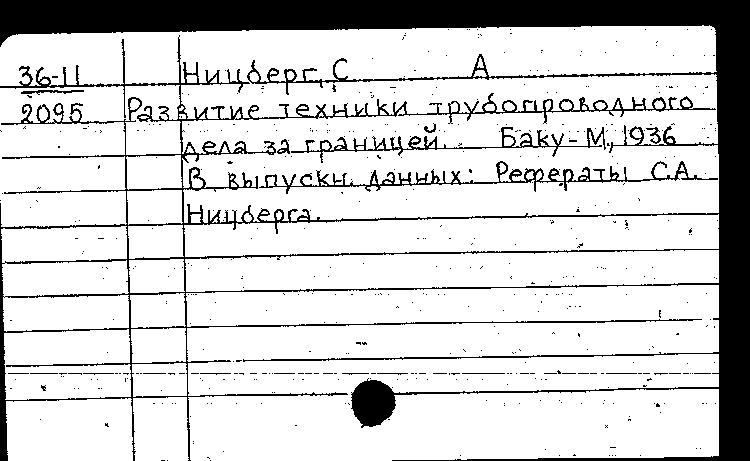 36-11 Ницберг, С А
2095 Развитие техники трубопроводного
дела за границей. Баку-М., 1936
В выпускн. данных: Рефераты С.А.
Ницберга.